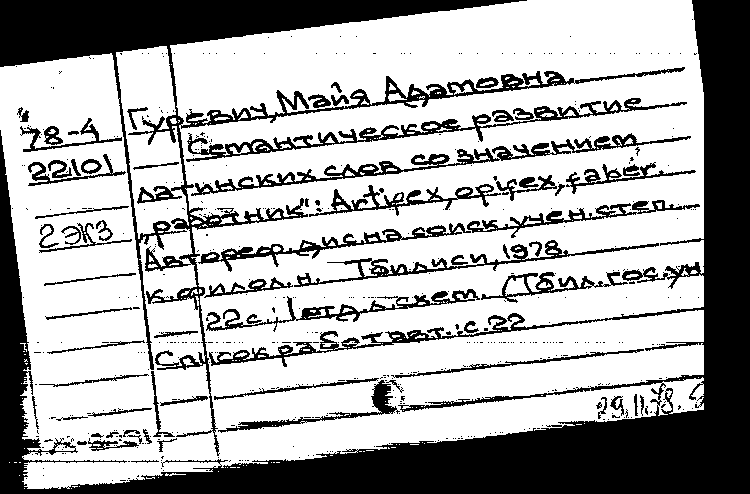 78-4
22101
2 экз
Гуревич, Майя Адамовна.
Семантическое развитие
латинских слов со значением
„работник": Artifex, opifex, faber.
Автореф. дис. на соиск. учен. степ.
к. филол. н. Тбилиси, 1978.
22 с.; 1 отд. л. схем. (Тбил. гос. ун
Список работ авт.: с. 22.
29.11.78.